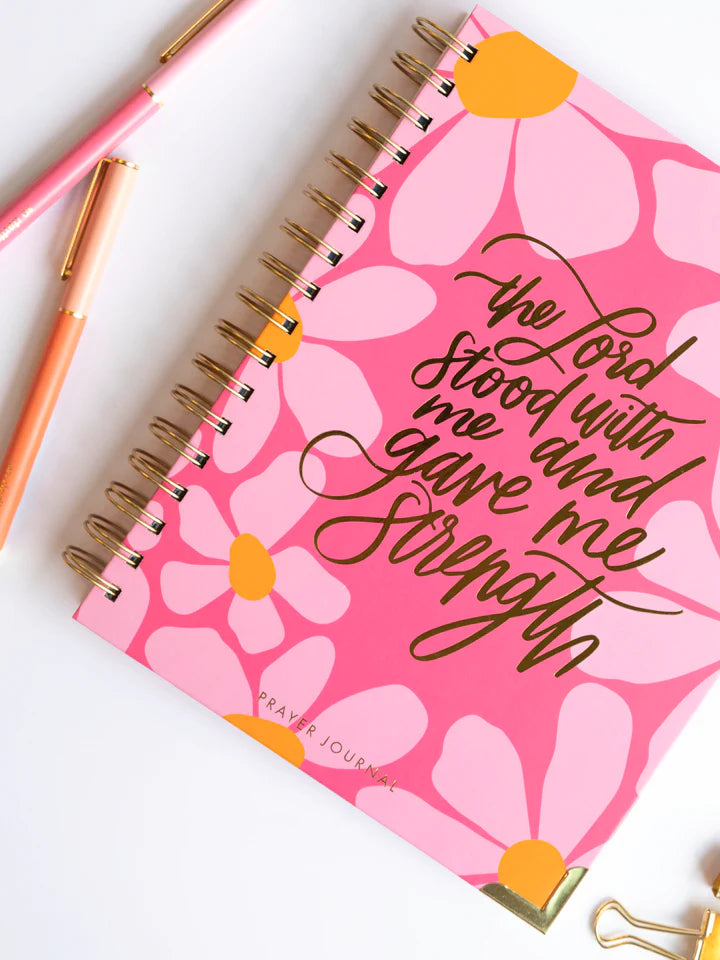 the Lord
stood with
me and
gave me
strength
PRAYER JOURNAL